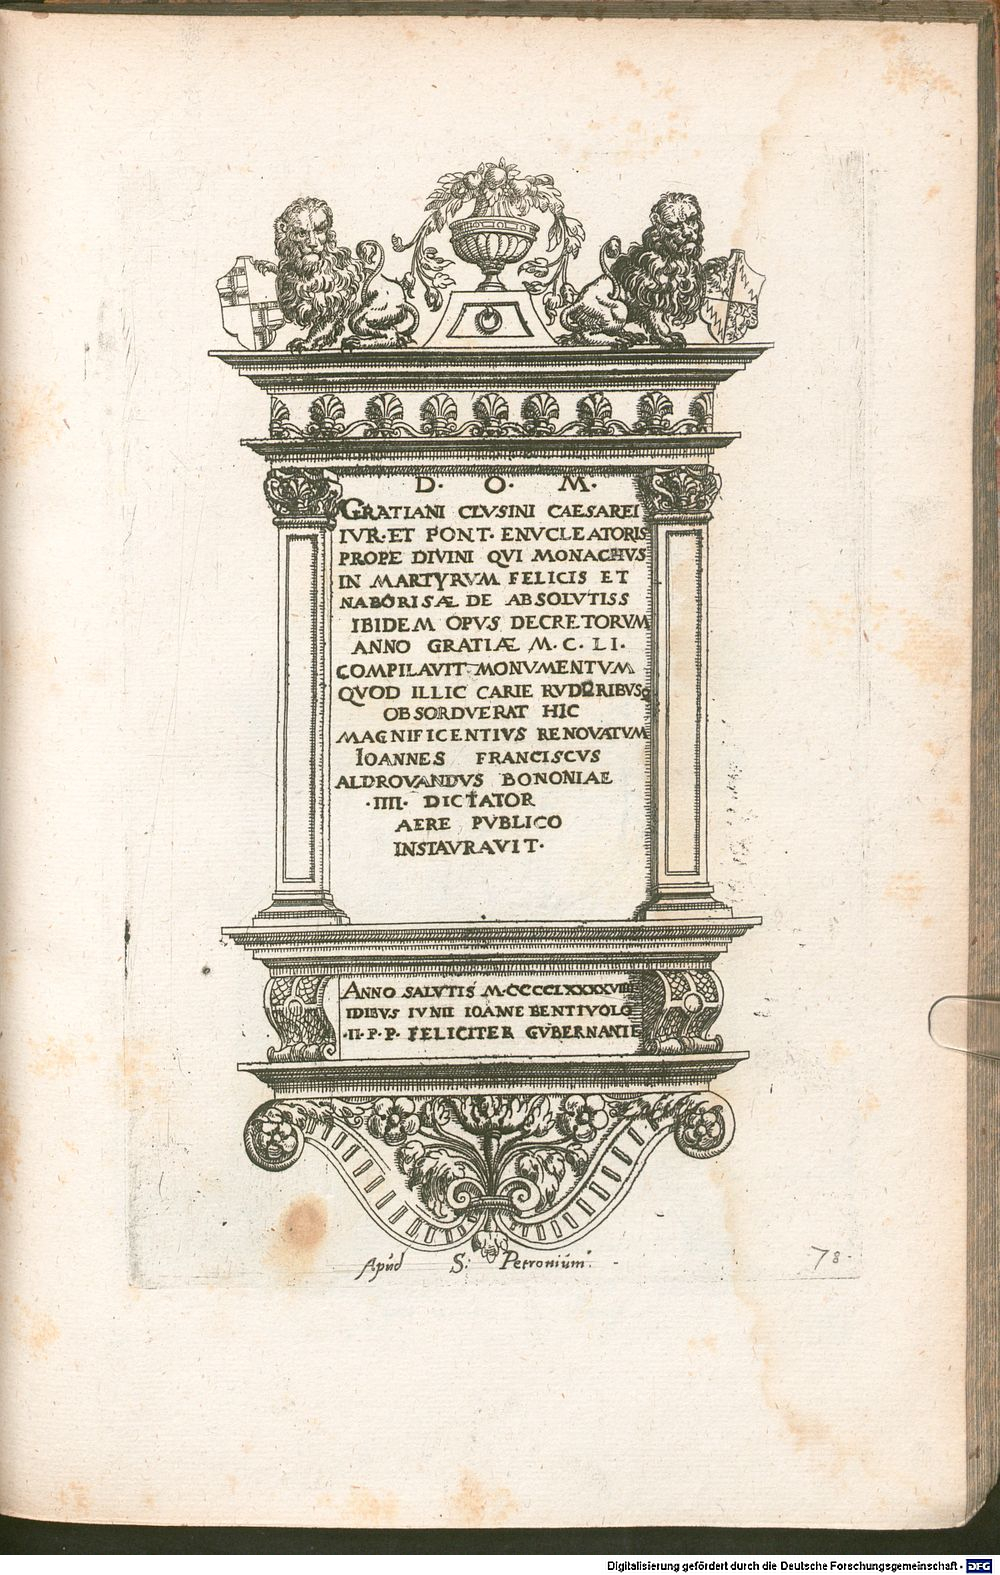 D. O. M.
GRATIANI CLVSINI CAESAREI
IVR. ET PONT. ENVCLEATORIS
PROPE DIVINI QVI MONACHVS
IN MARTYRVM FELICIS ET
NABORIS Æ DE ABSOLVTISS
IBIDEM OPVS DECRETORVM
ANNO GRATIÆ M. C. LI.
COMPILAVIT MONVMENTVM
QVOD ILLIC CARIE RVDERIBVSQ
OBSORDVERAT HIC
MAGNIFICENTIVS RENOVATVM
IOANNES FRANCISCVS
ALDROVANDVS BONONIAE
.IIII. DICTATOR
AERE PVBLICO
INSTAVRAVIT.
ANNO SALVTIS M.CCCCLXXXXVIII
IDIBVS IVNII IOANNE BENTIVOLO
.II. P. P. FELICITER GVBERNANTE
Apud S. Petronium.
78.
Digitalisierung gefördert durch die Deutsche Forschungsgemeinschaft - DFG